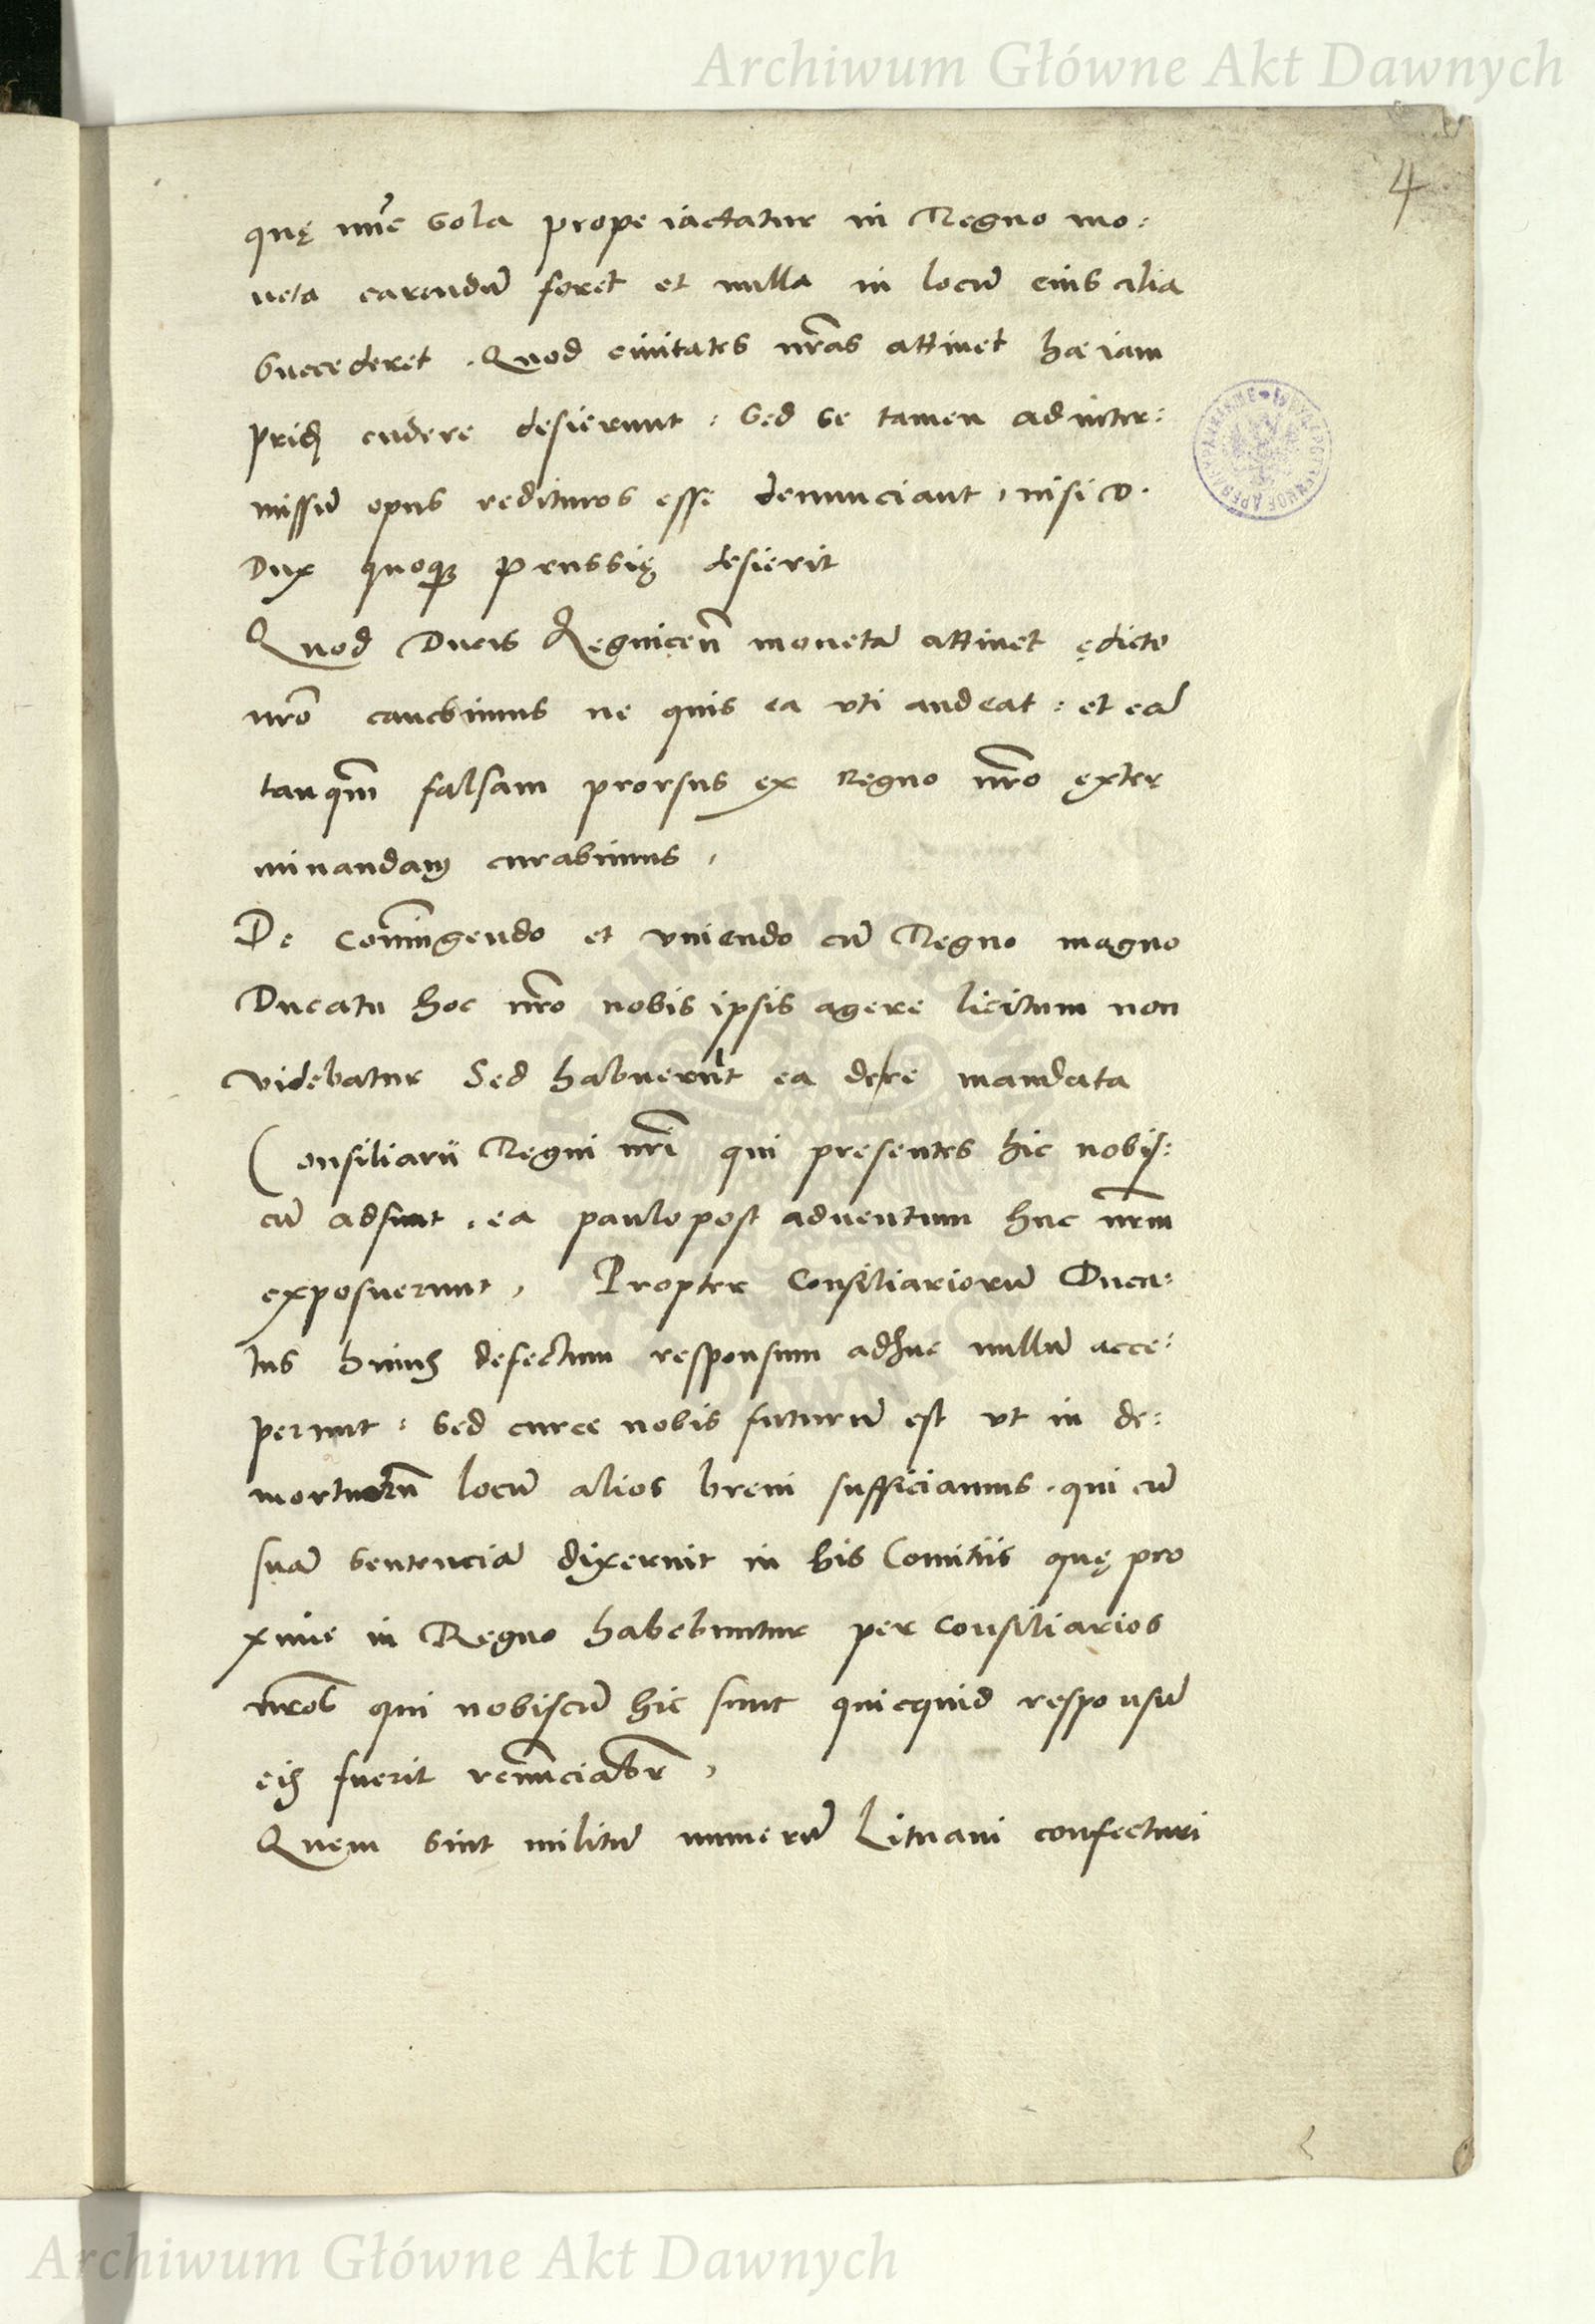 Archiwum Główne Akt Dawnych
4
quę nūc sola prope iactatur in Regno mo:
neta carendū foret et nulla in locū eius alia
succederet. Quod ciuitates nr̄as attinet hae iam
prideʒ cudere desierunt: sed se tamen ad inter:
missū opus redituros esse denunciant, nisi D.
Dux quoqꝫ Prussię desierit
Quod Ducis Legnicen̄ monetā attinet ędicto
nr̄o cauebimus ne quis ea vti audeat: et eā
tanqm̄ falsam prorsus ex Regno nr̄o exter
minandaꝫ curabimus,
De coniūgendo et vniendo cū Regno magno
Ducatu hoc nr̄o nobis ipsis agere licitum non
videbatur Sed habuerūt ea de re mandata
Consiliarii Regni nr̄i qui presentes hic nobis:
cū adsunt. ea paulo post aduentum huc nr̄m
exposuerunt, Propter Consiliariorū Duca:
tus huiuꝫ defectum responsum adhuc nullū acce:
perunt: sed curae nobis futurū est vt in de:
mortuorū locū alios breui sufficiamus. qui cū
suā sentenciā dixerint in his Comitiis quę pro
xime in Regno habebuntur per consiliarios
nr̄os qui nobiscū hic sunt quicquid responsū
eiꝫ fuerit renūciabr̄,
Quem sint militū numerū Lituani confecturi
Archiwum Główne Akt Dawnych